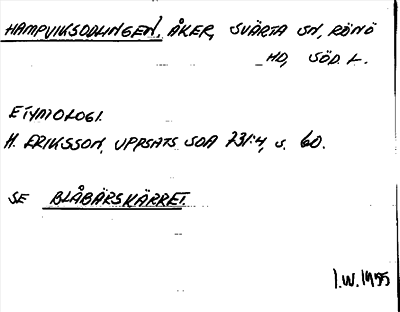 HAMPVIKSODLINGEN, ÅKER, SVÄRTA SN, RÖNÖ
HD, SÖD. L.
ETYMOLOGI.
H. ERIKSSON, UPPSATS SOA 731:4, s. 60.
SE BLÅBÄRSKÄRRET.
I.W. 1955